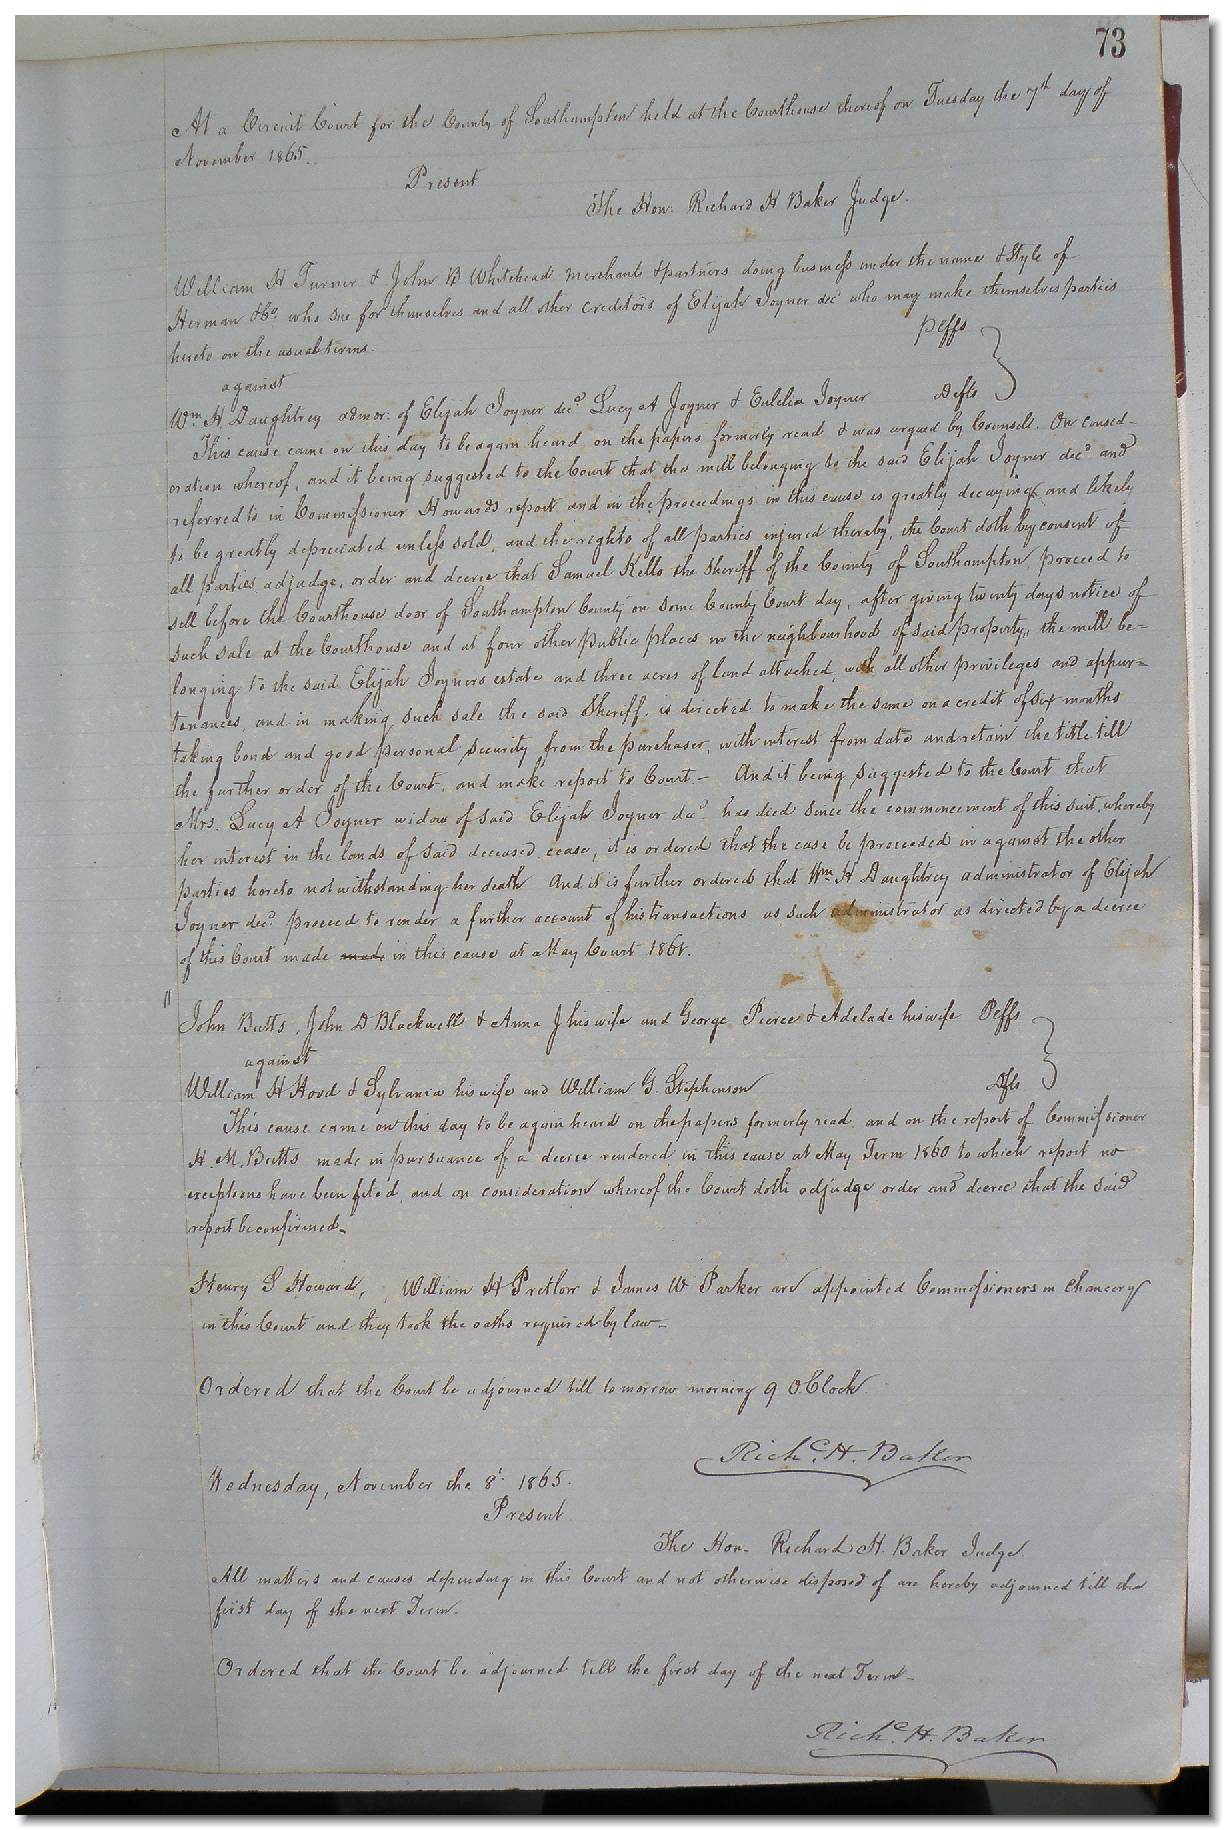 73
At a Circuit Court for the County of Southampton held at the Courthouse thereof on Tuesday the 7th day of
November 1865.
Present
The Hon. Richard H Baker Judge.
William H Turner & John B Whitehead merchants & partners doing business under the name & Style of
Herman & Co. who sue for themselves and all other creditors of Elijah Joyner decd who may make themselves parties
hereto on the usual terms.
Plffs
against
Wm H Daughtrey admor. of Elijah Joyner decd Lucy A Joyner & Eulelia Joyner Defts
This cause came on this day to be again heard on the papers formerly read & was argued by Counsell. On consid-
eration whereof, and it being suggested to the Court that the mill belonging to the said Elijah Joyner decd and
referred to in Commissioner Howards report and in the proceedings in this cause is greatly decaying and likely
to be greatly depreciated unless sold, and the rights of all parties injured thereby, the Court doth by consent of
all parties adjudge, order and decree that Samuel Kello the Sheriff of the County of Southampton, proceed to
sell before the Courthouse door of Southampton County on some County Court day, after giving twenty days notice of
such sale at the Courthouse and at four other public places in the neighbourhood of said property, the mill be-
longing to the said Elijah Joyners estate and three acres of land attached, with all other privileges and appur-
tenances, and in making such sale the said Sheriff is directed to make the same on a credit of six months
taking bond and good personal security from the purchaser, with interest from date and retain the title till
the further order of the Court, and make report to Court— And it being suggested to the Court that
Mrs. Lucy A Joyner widow of said Elijah Joyner decd has died since the commencement of this suit, whereby
her interest in the lands of said deceased cease, it is ordered that the case be proceeded in against the other
parties hereto notwithstanding her death And it is further ordered that Wm H Daughtrey administrator of Elijah
Joyner decd proceed to render a further account of his transactions as such administrator as directed by a decree
of this Court made made in this cause at May Court 1861.
"
John Butts, John D Blackwell & Anna J his wife and George Pierce & Adelade his wife Plffs
against
William H Hood & Sylvania his wife and William G. Stephenson Dfts
This cause came on this day to be again heard on the papers formerly read, and on the report of Commissioner
H. M. Butts made in pursuance of a decree rendered in this cause at May Term 1860 to which report no
exceptions have been filed, and on consideration whereof the Court doth adjudge order and decree that the said
report be confirmed—
Henry S Howard, William H Pretlow & James W Parker are appointed Commissioners in Chancery
in this Court and they took the oaths required by law—
Ordered that the Court be adjourned till tomorrow morning 9 O.Clock.
Richd. H. Baker
Wednesday, November the 8th 1865.
Present
The Hon. Richard H. Baker Judge.
All matters and causes depending in this Court and not otherwise disposed of are hereby adjourned till the
first day of the next Term—
Ordered that the Court be adjourned till the first day of the next Term—
Richd. H. Baker